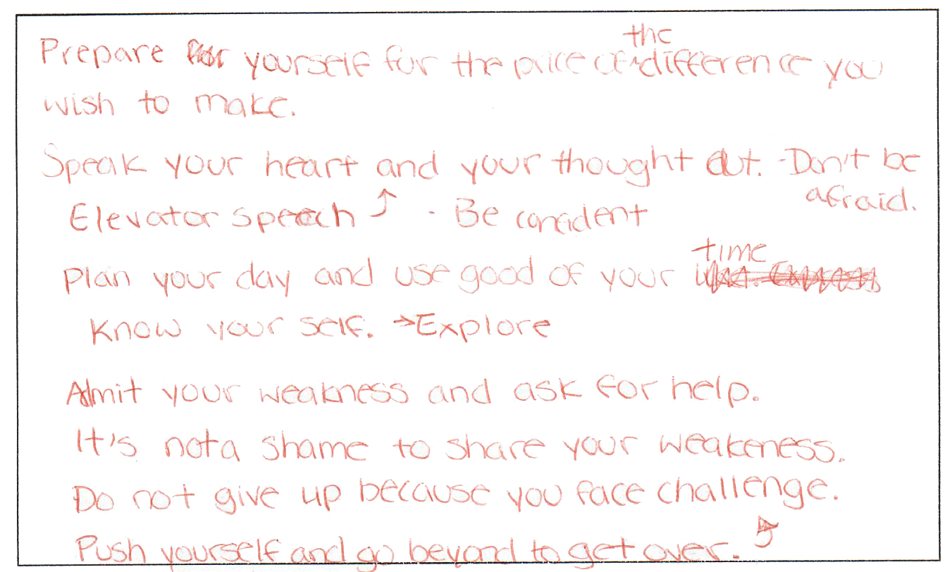 Prepare yourself for the price of the difference you
wish to make.
Speak your heart and your thought out. - Don't be
afraid.
Elevator speech ↑ - Be confident
Plan your day and use good of your time
Know your self. → Explore
Admit your weakness and ask for help.
It's not a shame to share your weakeness.
Do not give up because you face challenge.
Push yourself and go beyond to get over. ↑